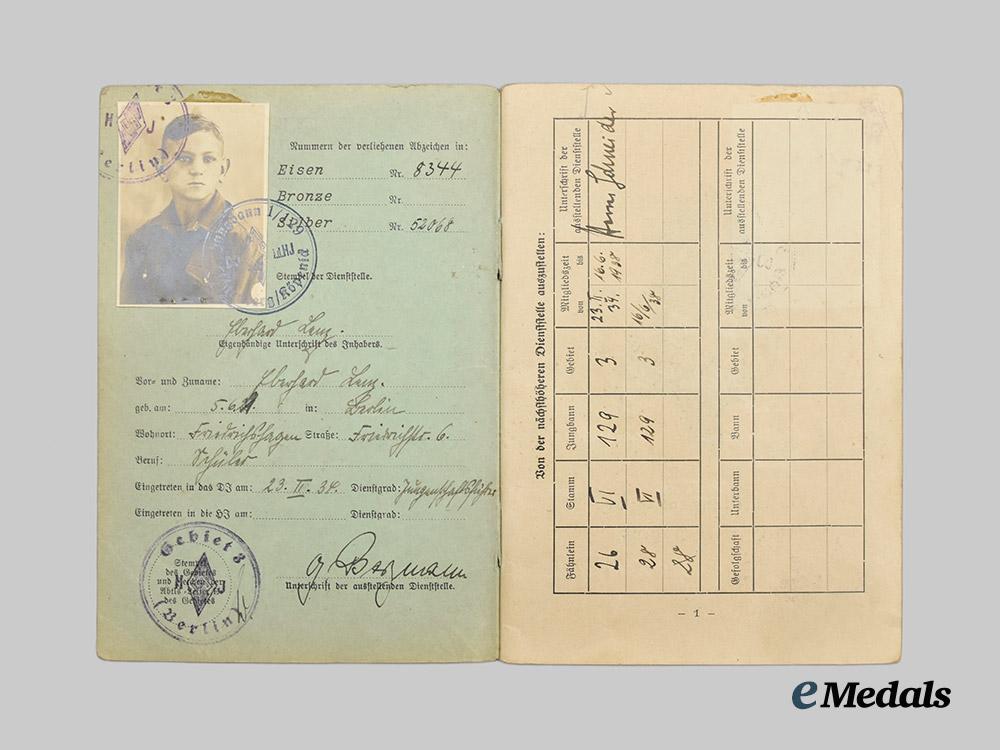 H J
Berlin
Nummern der verliehenen Abzeichen in:
Eisen Nr. 8344
Bronze Nr.
Silber Nr. 52068
Jungbann 1/129
Stempel der Dienststelle.
Eberhard Lenz.
Eigenhändige Unterschrift des Inhabers.
Vor- und Zuname: Eberhard Lenz.
geb. am: 5.6. in: Berlin
Wohnort: Friedrichshagen Straße: Friedrichstr. 6.
Beruf: Schüler
Eingetreten in das DJ am: 23. II. 34. Dienstgrad: Jungenschaftsführer
Eingetreten in die HJ am: Dienstgrad:
Gebiet 3
H J
(Berlin)
Stempel
des Gebietes
des Gebietes
Unterschrift der ausstellenden Dienststelle.
Von der nächsthöheren Dienststelle auszustellen:
Fähnlein Stamm Jungbann Gebiet Mitgliedszeit von bis Unterschrift der ausstellenden Dienststelle
26 VI 129 3 16.6. 1938 Schneider
28 VI 129 3 16/6 38
28
Gefolgschaft Unterbann Bann Gebiet Mitgliedszeit von bis Unterschrift der ausstellenden Dienststelle
- 1 -
eMedals